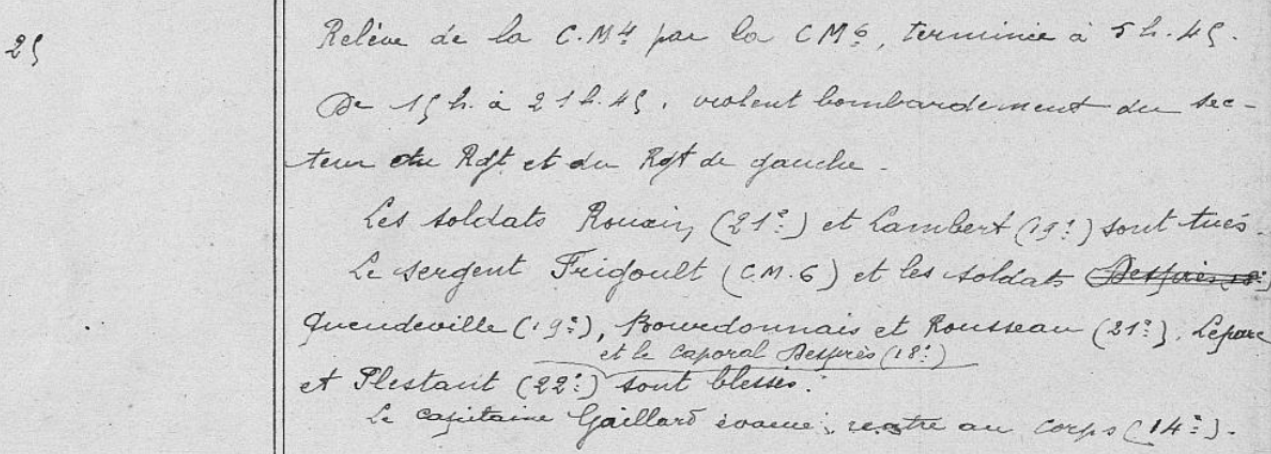 25
Relève de la C.M⁴ par la CM⁶, terminée à 5 h. 45.
De 15 h. à 21 h. 45, violent bombardement du sec-
teur du Rgt et du Rgt de gauche.
Les soldats Rouxin, (21ᵉ) et Lambert (19ᵉ) sont tués.
Le sergent Frigoult (C.M.6) et les soldats Després (18ᵉ)
Queudeville (19ᵉ), Bourdonnais et Rousseau (21ᵉ), Lepare
et le caporal Després (18ᵉ)
et Plestant (22ᵉ) sont blessés.
Le capitaine Gaillard évacué, rentre au corps (14ᵉ).